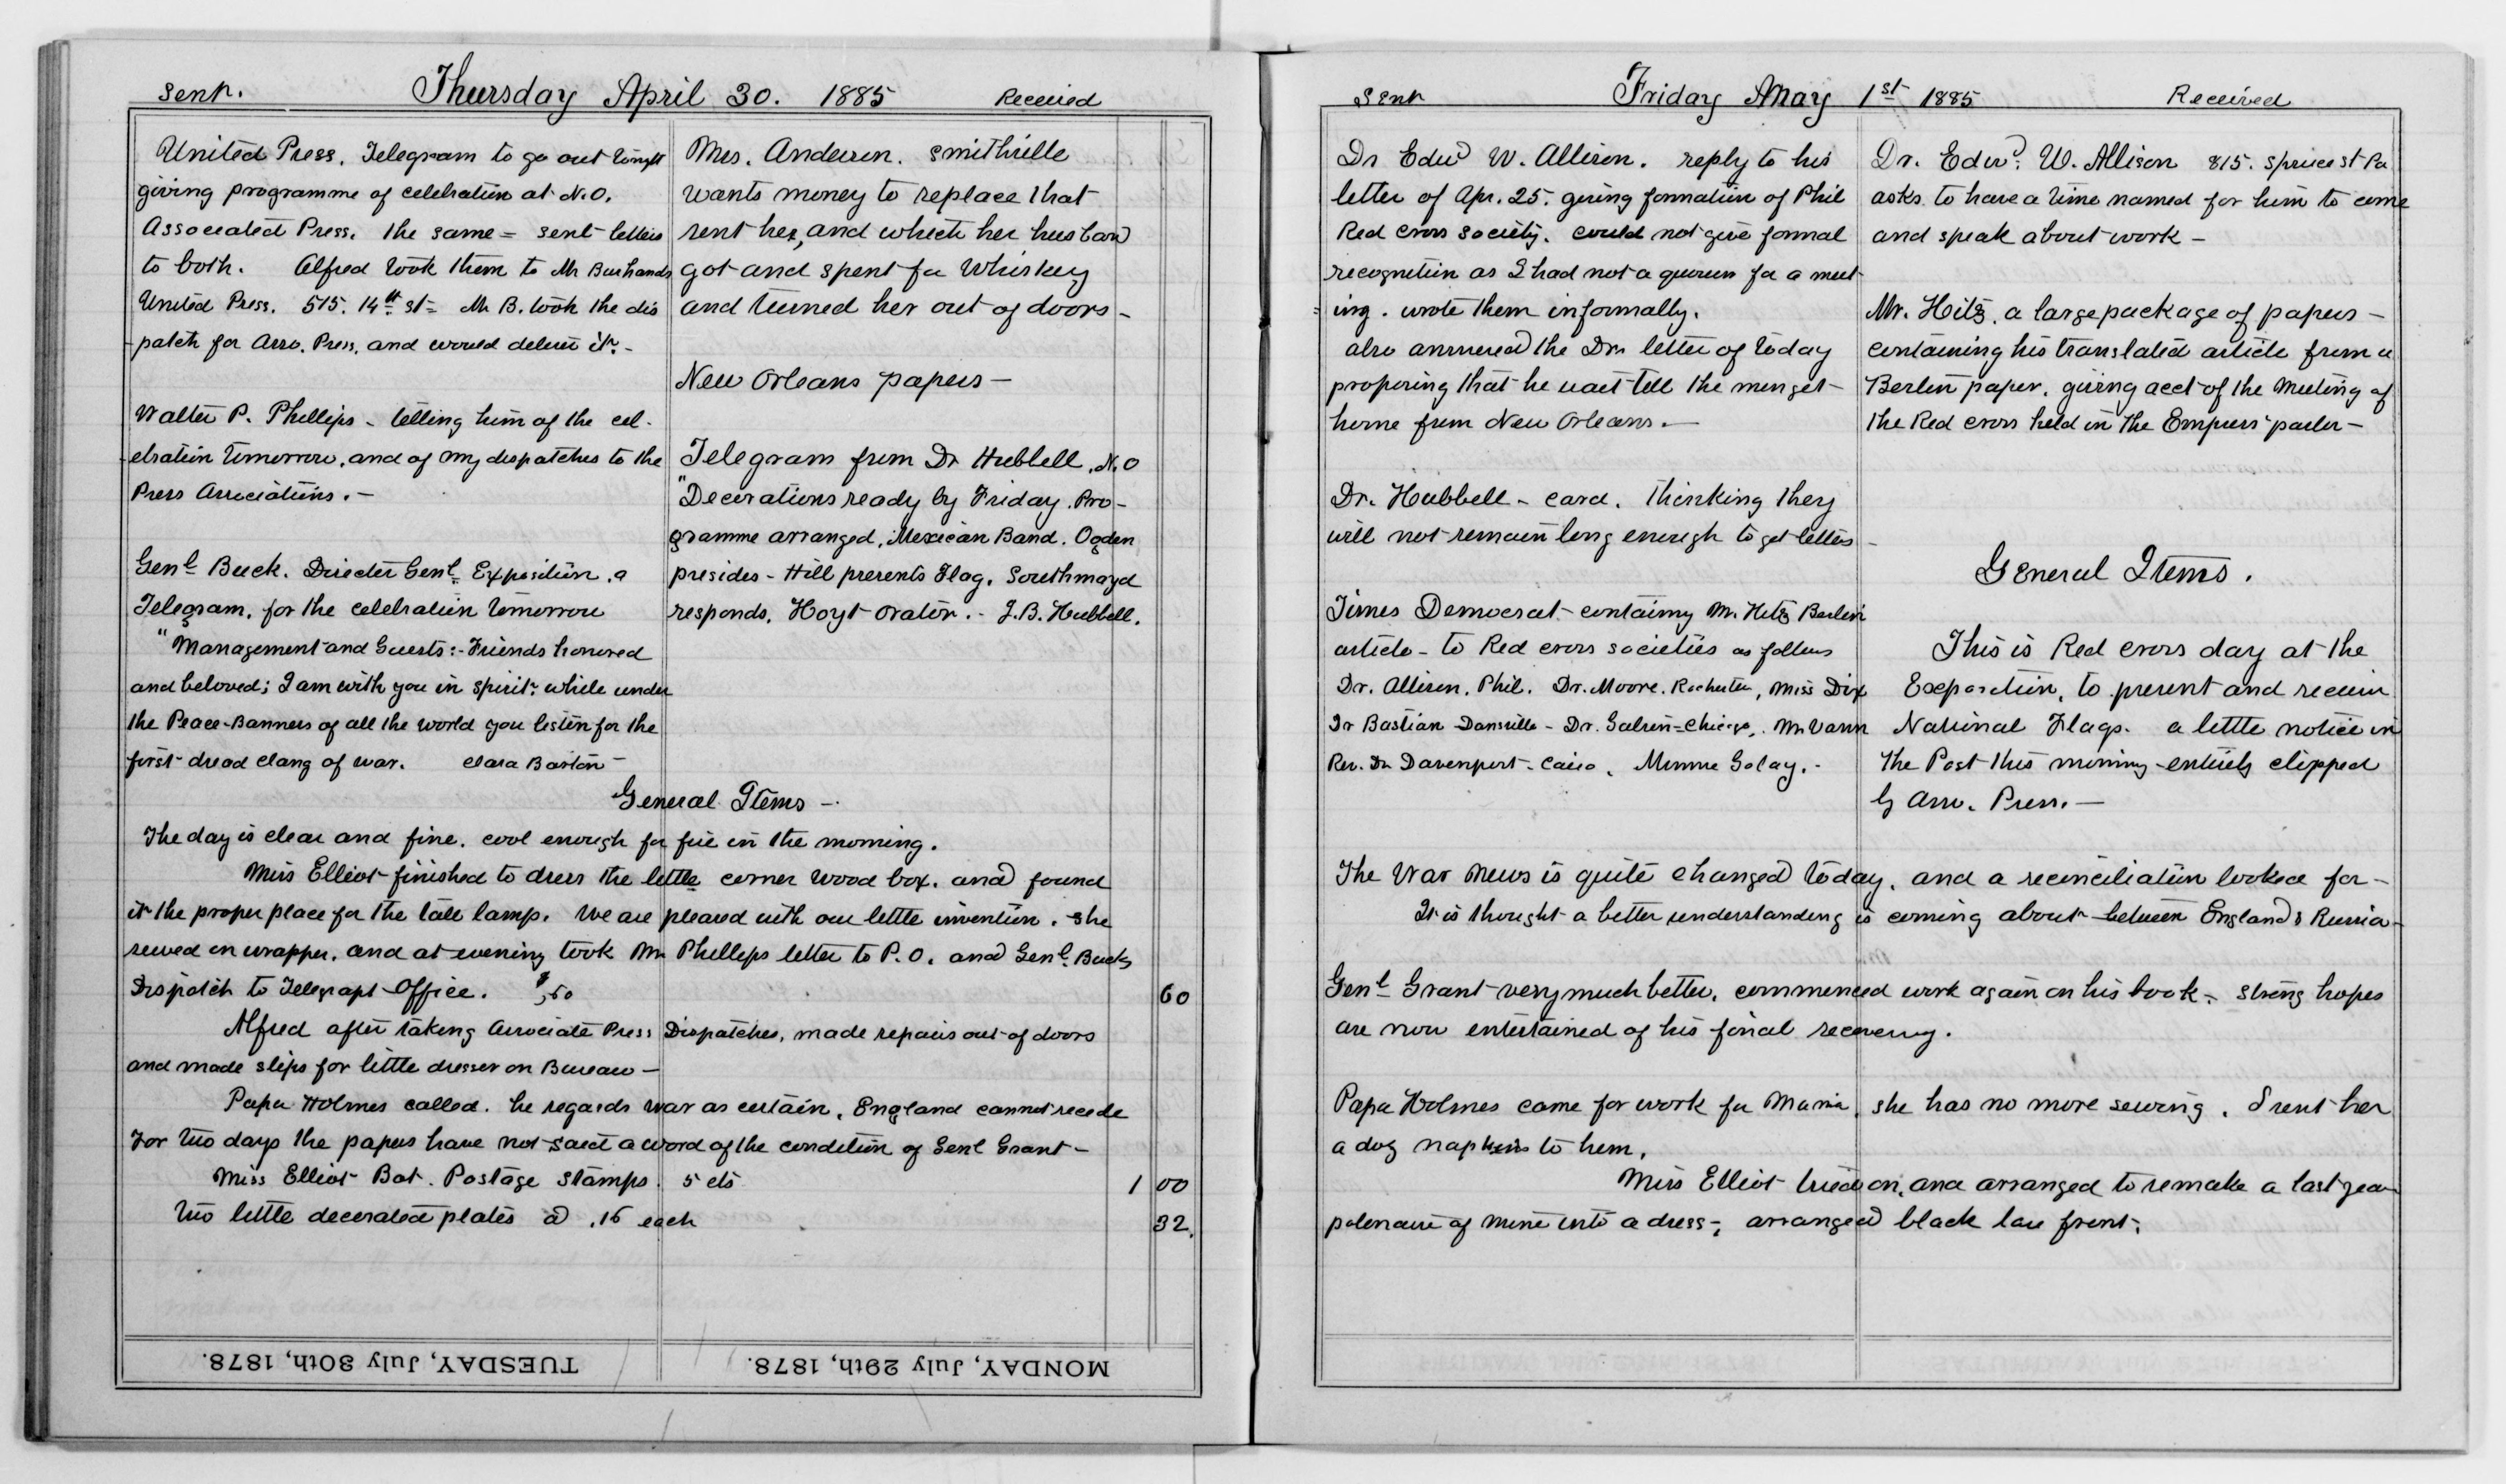 Sent. Thursday April 30. 1885 Received
United Press. Telegram to go out tonight
giving programme of celebration at N.O.
Associated Press. the same = sent letters
to both. Alfred took them to Mr Burhands
United Press. 515. 14th st = Mr B. took the dis
-patch for Asso. Press, and would deliver it. -
Walter P. Phillips - telling him of the cel-
-ebration tomorrow, and of my dispatches to the
Press Associations. -
Genl Buck. Director Genl. Exposition. a
Telegram, for the celebration tomorrow
"Management and Guests :- Friends honored
and beloved; I am with you in spirit while under
the Peace-Banners of all the world you listen for the
first dread clang of war. Clara Barton -
Mrs. Anderson. Smithville
wants money to replace that
sent her, and which her husband
got and spent for Whiskey
and turned her out of doors -
New Orleans papers -
Telegram from Dr Hubbell, N.O
"Decorations ready by Friday. Pro-
gramme arranged, Mexican Band. Ogden
presides - Hill presents Flag. Southmayd
responds. Hoyt orator. - J.B. Hubbell.
General Items -
The day is clear and fine. cool enough for fire in the morning.
Miss Elliot finished to dress the little corner wood box. and found
it the proper place for the tall lamp. We are pleased with our little invention. She
sewed on wrapper, and at evening took Mr Phillips letter to P.O. and Genl. Bucks
Dispatch to Telegraph Office. $.60 60
Alfred after taking Associate Press Dispatches, made repairs out of doors
and made slips for little dresser on Bureau -
Papa Holmes called. he regards war as certain, England cannot recede
For two days the papers have not said a word of the condition of Genl Grant -
Miss Elliot Bot. Postage Stamps. 5 cts 1 00
two little decorated plates @ .16 each 32.
TUESDAY, July 30th, 1878. MONDAY, July 29th, 1878.
Sent Friday May 1st 1885 Received
Dr Edwd W. Allison. reply to his
letter of Apr. 25. giving formation of Phil
Red Cross Society. could not give formal
recognition as I had not a quorum for a meet
ing. wrote them informally.
also answered the Drs letter of today
proposing that he wait till the men get
home from New Orleans. -
Dr. Hubbell - card. thinking they
will not remain long enough to get letters -
Times Democrat containing Mr. Hitz Berlin
article - to Red Cross societies as follows
Dr. Allison, Phil. Dr. Moore. Rochester, Miss Dix
Dr Bastian Dansville - Dr. Chicago, Mr Vann
Rev. Dr Davenport. Cairo, Minnie Golay. -
Dr. Edwd. W. Allison 815. Spruce st Pa
asks to have a time named for him to come
and speak about work -
Mr. Hitz. a large package of papers -
containing his translated article from a
Berlin paper. giving acct of the Meeting of
the Red Cross held in the Empress' parlor -
General Items.
This is Red Cross day at the
Exposition, to present and receive
National Flags. a little notice in
the Post this morning - entirely clipped
by Asso. Press. -
The War news is quite changed today, and a reconciliation looked for -
It is thought a better understanding is coming about between England & Russia -
Genl Grant very much better, commenced work again on his book - strong hopes
are now entertained of his final recovery.
Papa Holmes came for work for Mamia, she has no more sewing. I sent her
a doz napkins to hem.
Miss Elliot tried on, and arranged to remake a last year
polonaise of mine into a dress -, arranged black lace front.